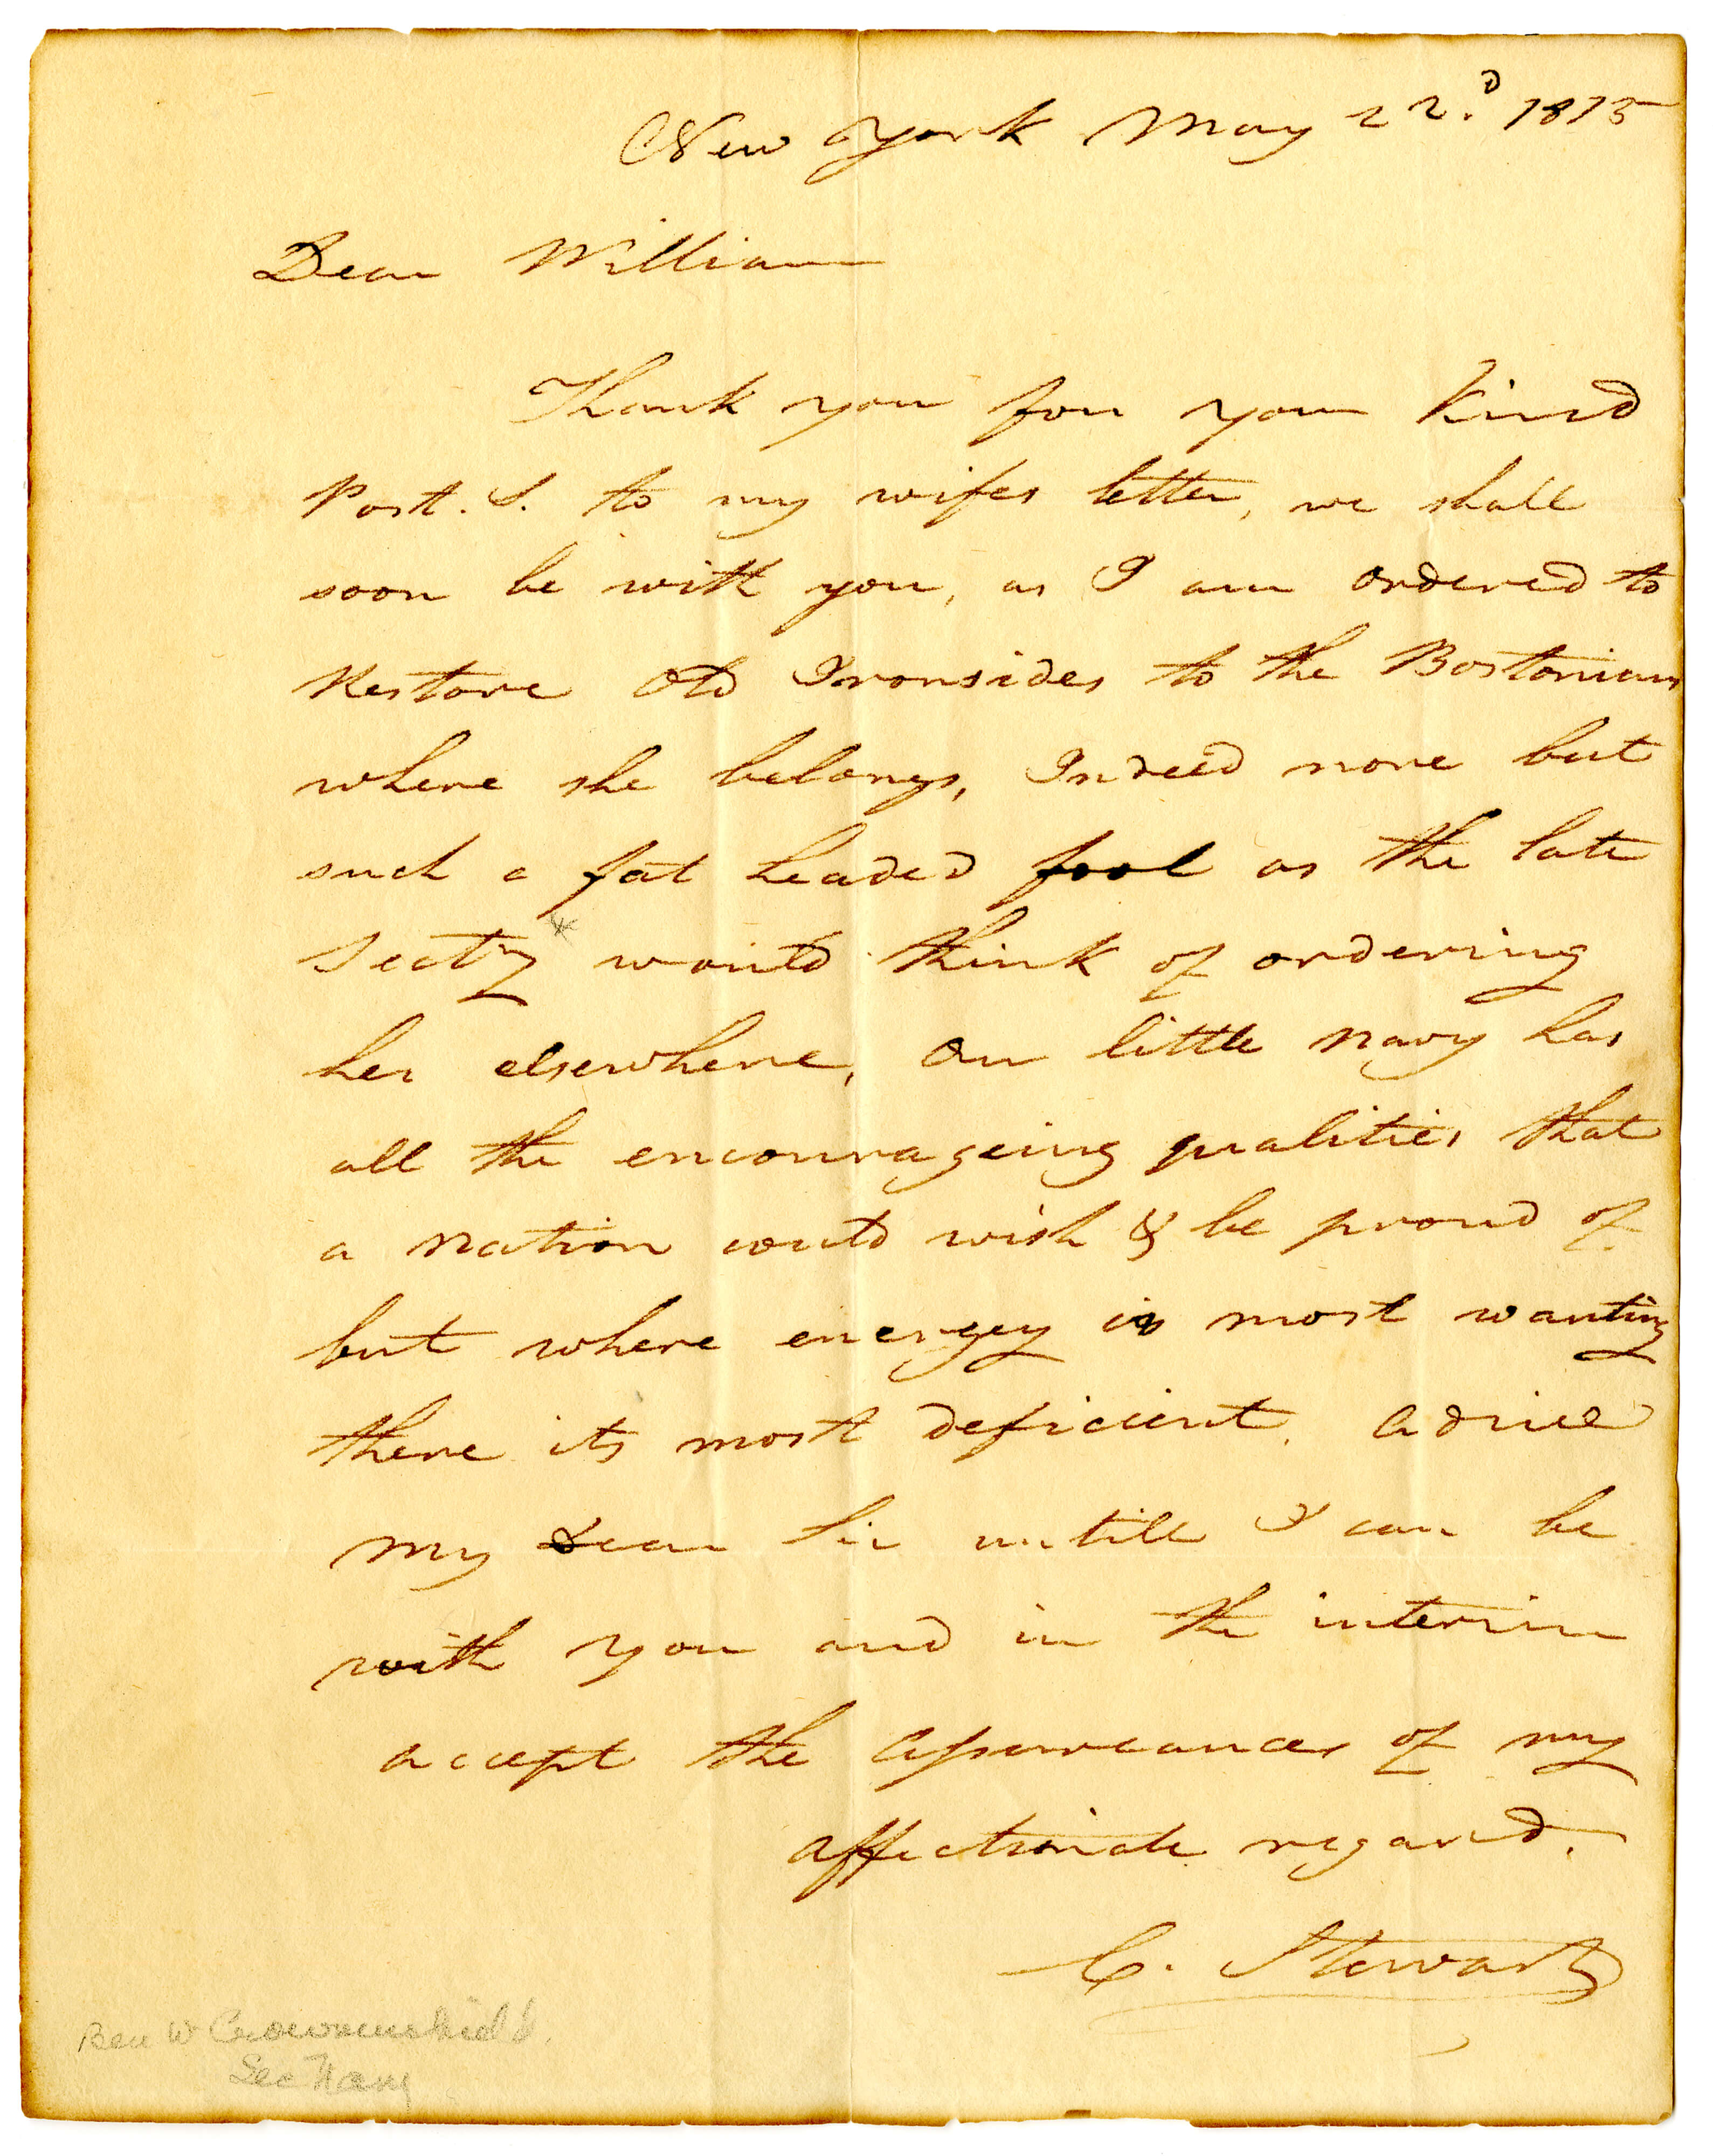 New York May 22.d 1815
Dear William
Thank you for your kind
Post. S. to my wifes letter, we shall
soon be with you, as I am ordered to
Restore Old Ironsides to the Bostonians
where she belongs, Indeed none but
such a fat headed fool as the late
Secty* would think of ordering
her elsewhere, Our little navy has
all the encourageing qualities that
a nation could wish & be proud of
but where energey is most wanting
there its most deficient.
my Dear Sir untill I can be
with you and in the interim
accept the of my
affectionate regard.
C. Stewart
Ben W Crowninshield.
Sec Navy